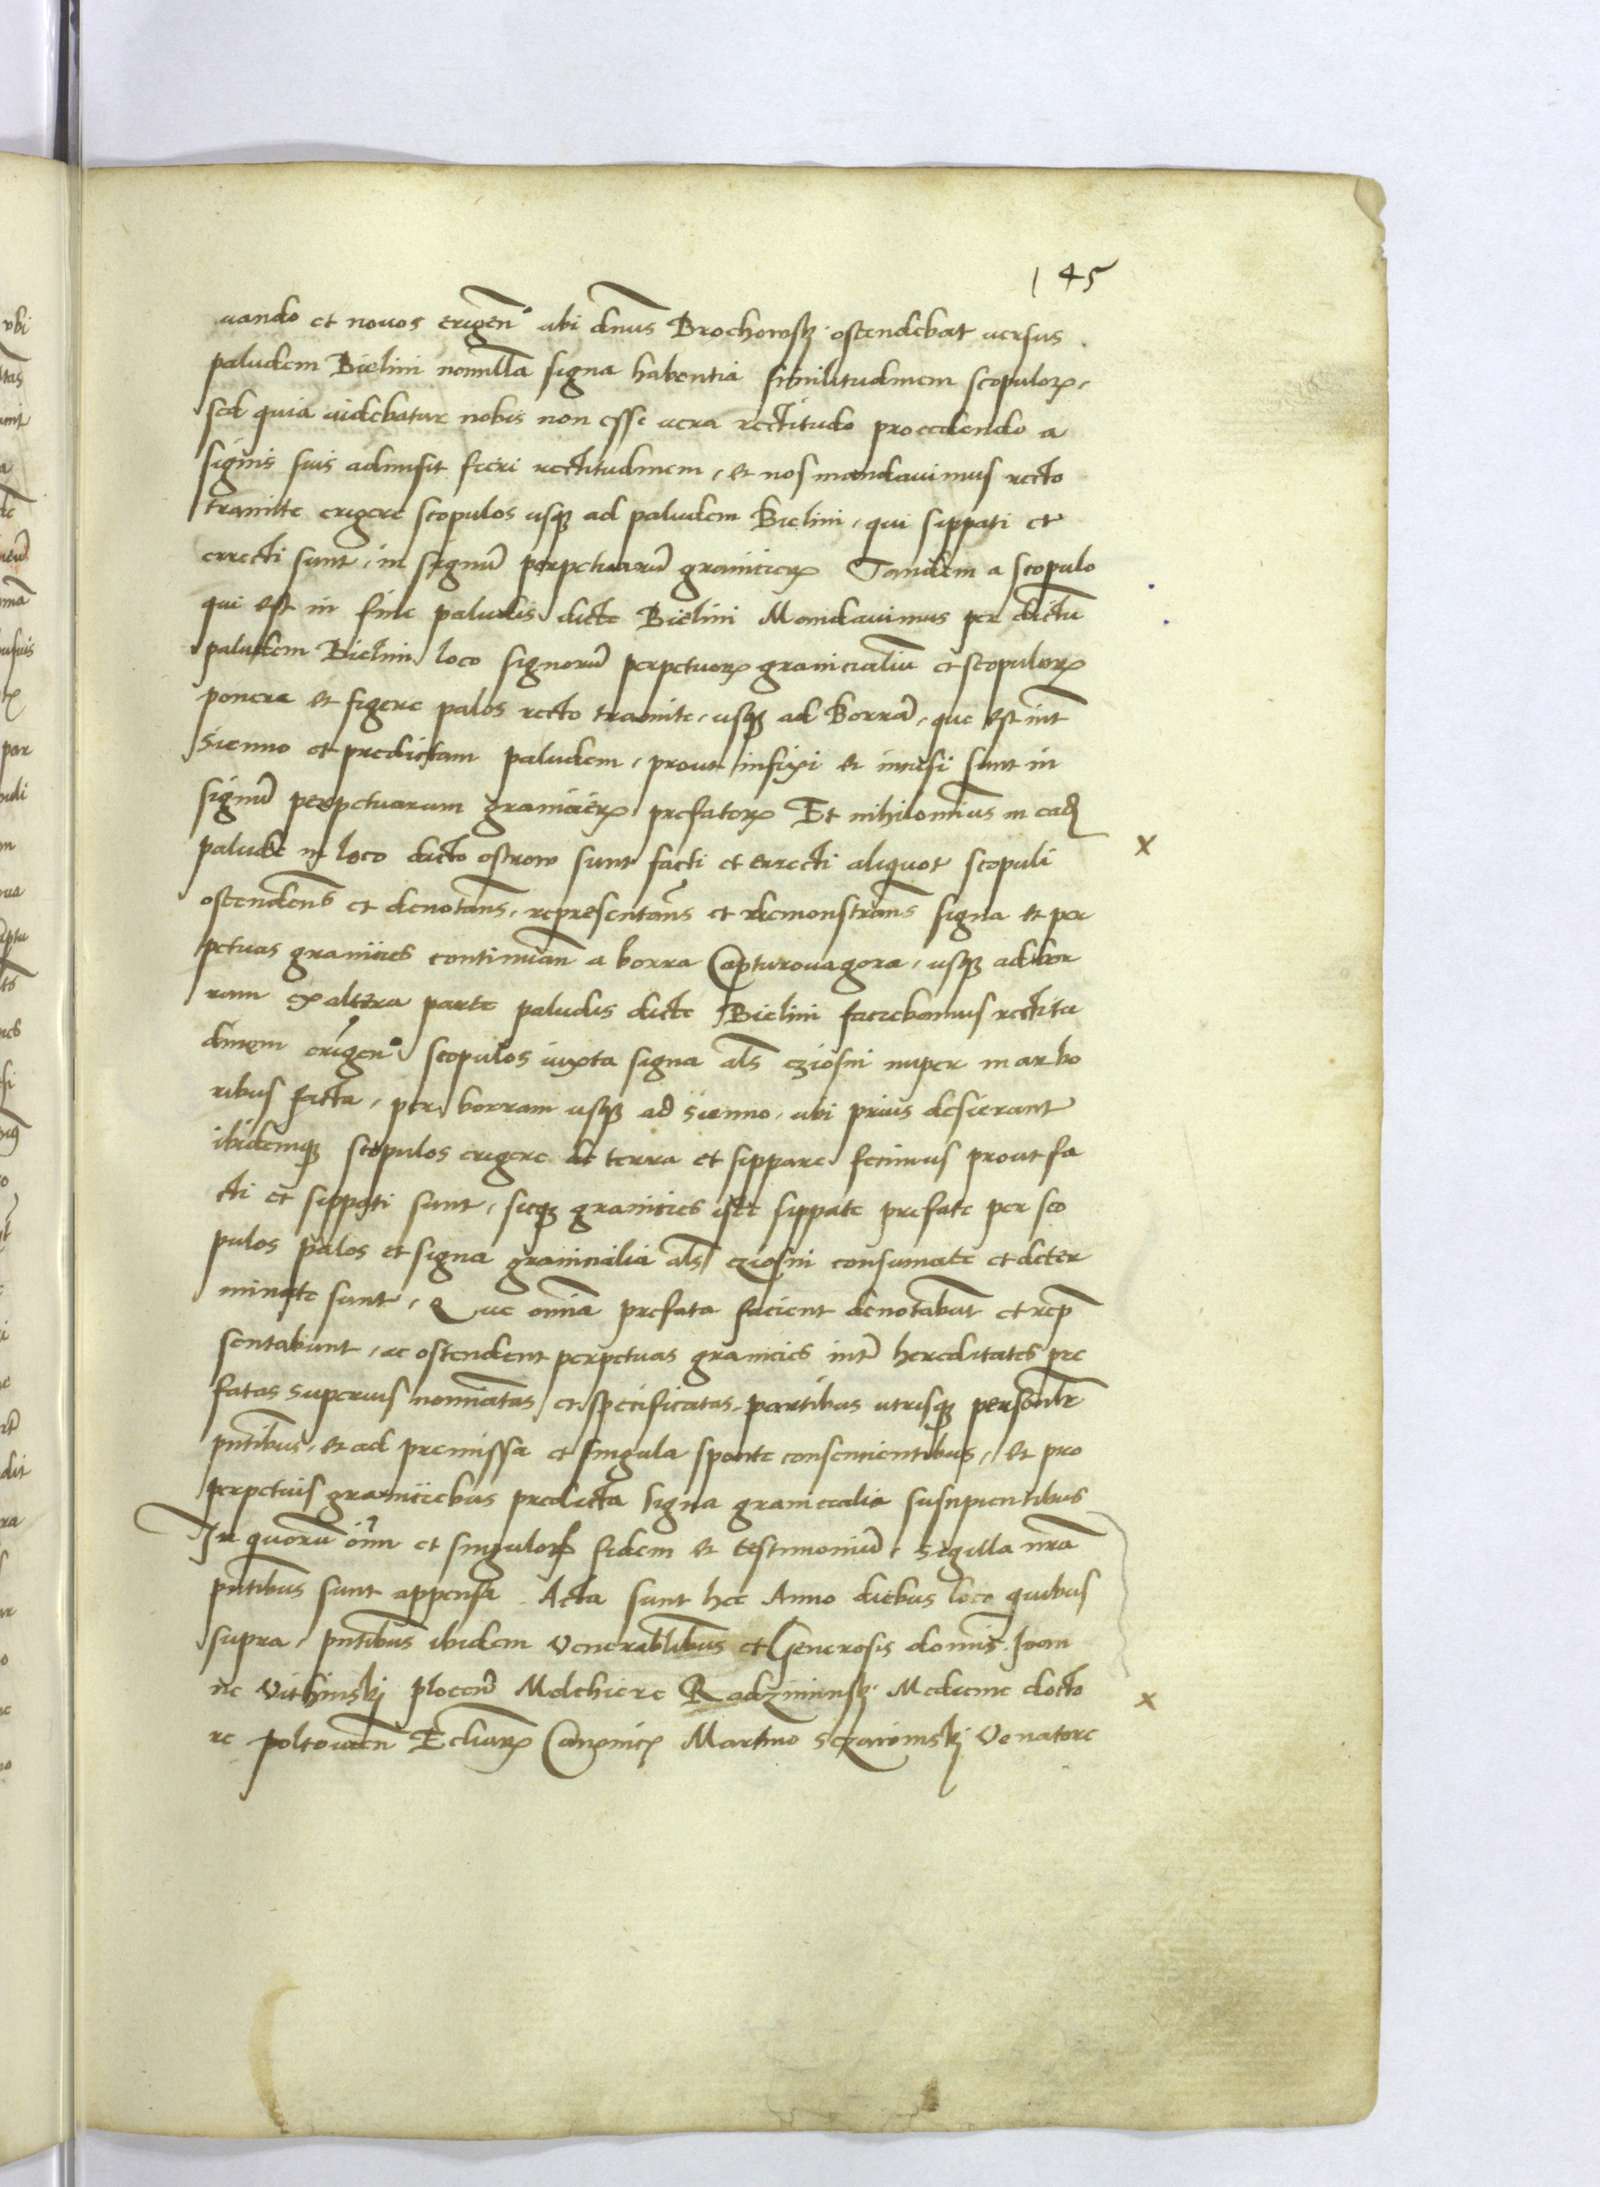 145
uando et nouos erigen° ubi dn̄us Brochowsk̨ ostendebat uersus
paludem Bielini nonnulla signa habentia similitudinem scopulor̨,
sed quia uidebatur nobis non esse uera rectitudo procedendo a
signis suis admisit fieri rectitudinem, et nos mandauimus recto
tramitte erigere scopulos usq̨ ad paludem Bielini, qui sippati et
errecti sunt, in signū perpetuarū granicier̨ Tandem a scopulo
qui est in fine paludis dicte Bielini Mandauimus per dictū
paludem Bielini loco signorū perpetuor̨ granicialiū et scopulor̨
ponere et figere palos recto tramite, usq̨ ad Borrā, que est int̄
Sienno et predictam paludem, prout infixi et incisi sunt in
signū perpetuarum granicier̨ prefator̨ Et nihilominus in ead̨
palude in loco dicto ostrow sunt facti et errecti aliquot scopuli
ostenden̄s et denotan̄s, representan̄s et demonstran̄s signa et per
petuas granicies continuan̄ a borra Capturouagora, usq̨ ad bor
ram ex altera parte paludis dicte Bielini faciebamus rectitu
dinem erigen° scopulos iuxta signa al̄s cziosni nuper in arbo
ribus facta, per borram usq̨ ad Sienno, ubi prius desierant
ibidemq̨ scopulos erigere de terra et sippare fecimus prout fa
cti et sippati sunt, sicq̨ granicies iste sippate prefate per sco
pulos palos et signa granicialia al̄s cziosni consumate et deter
minate sunt, Que omīa prefata facient denotabūt et rep̄
sentabunt, ac ostendent perpetuas granicies int̄ hereditates pre
fatas superius nomīatas et specificatas, partibus utrisq̨ personl̄r
pn̄tibus, et ad premissa et singula sponte consencientibus, et pro
perpetuis graniciebus predicta signa granicialia suscipientibus
In quorū om̄i et singulor̨ fidem et testimoniū, sigilla nr̄a
pn̄tibus sunt appensa. Acta sunt hec Anno diebus loco quibus
supra, pn̄tibus ibidem Venerabilibus et Generosis domīs Joan
ne Vithinskj plocen̄ Melchiore Radziminsk̨ Medicine docto
re poltouien̄ Eccl̄iar̨ Canonic̨ Martino Sczawinskj Venatore
x
x